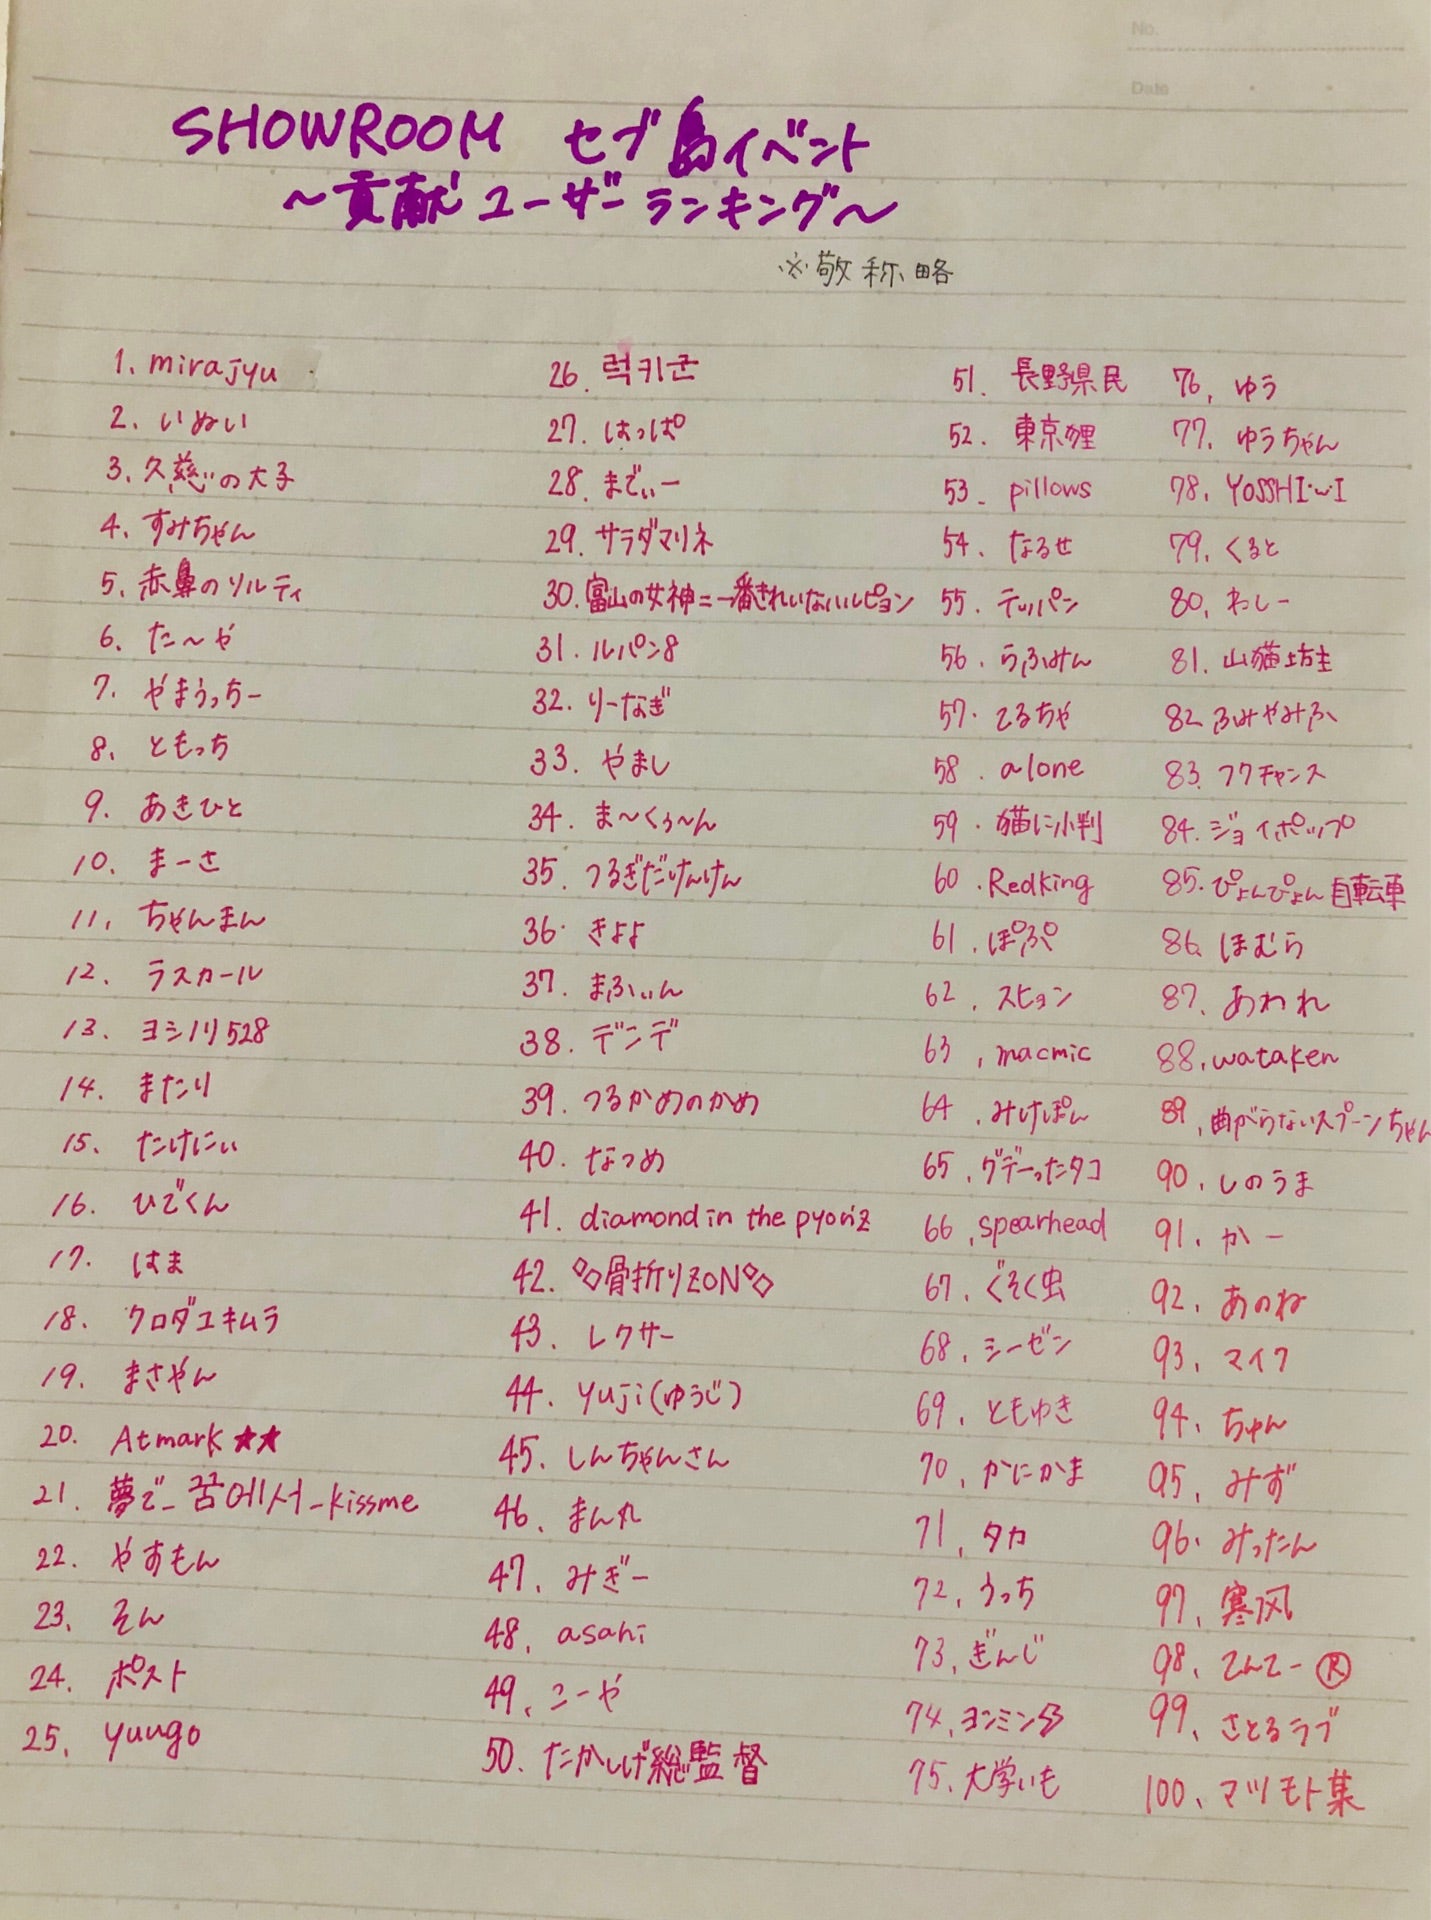 No.
Date
SHOWROOM セブ島イベント
～貢献ユーザーランキング～
※敬称略
1. mirajyu
2. いぬい
3. 久慈の大子
4. すみちゃん
5. 赤鼻のソルティ
6. た～や
7. やまうっちー
8. ともっち
9. あきひと
10. まーさ
11. ちゃんまん
12. ラスカール
13. ヨシノリ528
14. またり
15. たけにぃ
16. ひでくん
17. はま
18. クロダユキムラ
19. まさやん
20. Atmark★★
21. 夢で_꿈에서_kissme
22. やすもん
23. そん
24. ポスト
25. yuugo
26. 럭키군
27. はっぱ
28. までぃー
29. サラダマリネ
30. 富山の女神=一番きれいないルピョン
31. ルパン8
32. りーなぎ
33. やまし
34. ま～くぅ～ん
35. つるぎだけんけん
36. きよよ
37. まふぃん
38. デンデ
39. つるかめのかめ
40. なつめ
41. diamond in the pyoriz
42. ◇◇骨折りZON◇◇
43. レクサー
44. yuji(ゆうじ)
45. しんちゃんさん
46. まん丸
47. みぎー
48. asahi
49. こーや
50. たかしげ総監督
51. 長野県民
52. 東京狸
53. pillows
54. なるせ
55. テッパン
56. らふみん
57. てるちゃ
58. alone
59. 猫に小判
60. Redking
61. ぽぷ
62. スヒョン
63. macmic
64. みけぽん
65. グデーったタコ
66. spearhead
67. ぐそく虫
68. シーゼン
69. ともゆき
70. かにかま
71. タカ
72. うっち
73. ぎんじ
74. ヨンミン
75. 大学いも
76. ゆう
77. ゆうちゃん
78. YOSSHI·ω·I
79. くると
80. わしー
81. 山猫坊主
82. ふみやみふ
83. フクチャンス
84. ジョイポップ
85. ぴょんぴょん自転車
86. ほむら
87. あわれ
88. wataken
89. 曲がらないスプーンちゃん
90. しのうま
91. かー
92. あのね
93. マイク
94. ちゅん
95. みず
96. みったん
97. 寒风
98. てんてー®
99. さとるラブ
100. マツモト葉